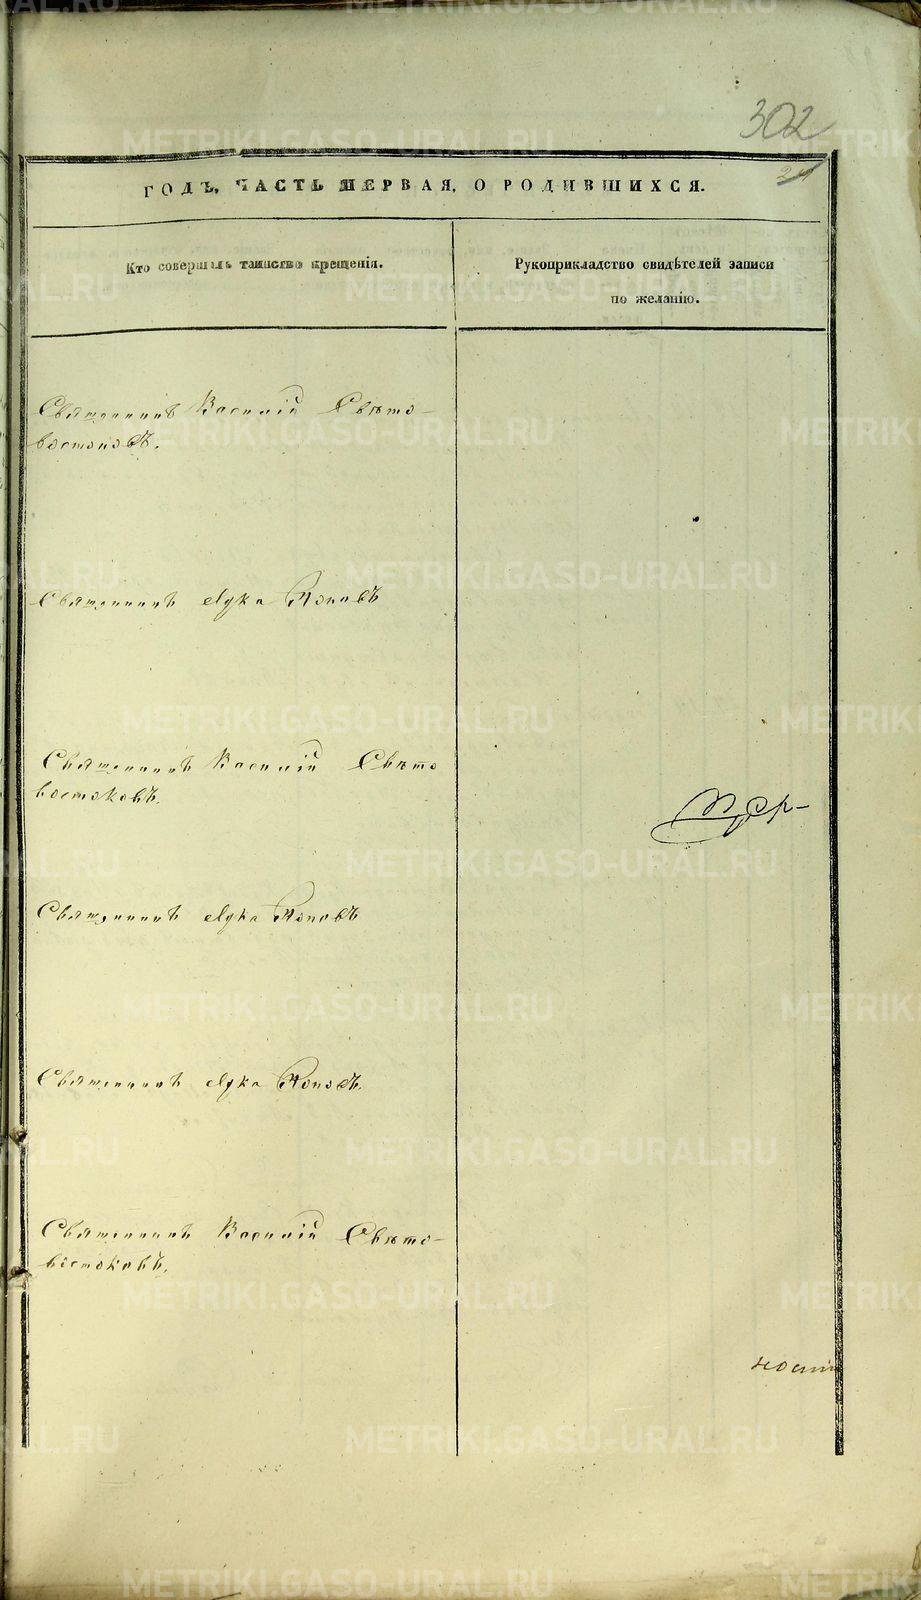 302
ГОДЪ, ЧАСТЬ ПЕРВАЯ, О РОДИВШИХСЯ.
Кто совершалъ таинство крещенія.
Рукоприкладство свидѣтелей записи
по желанію.
Священникъ Василій Свѣто-
востоковъ.
Священникъ Лука Поповъ
Священникъ Василій Свѣто
востоковъ.
Священникъ Лука Поповъ
Священникъ Лука Поповъ.
Священникъ Василій Свѣто-
востоковъ.
METRIKI.GASO-URAL.RU